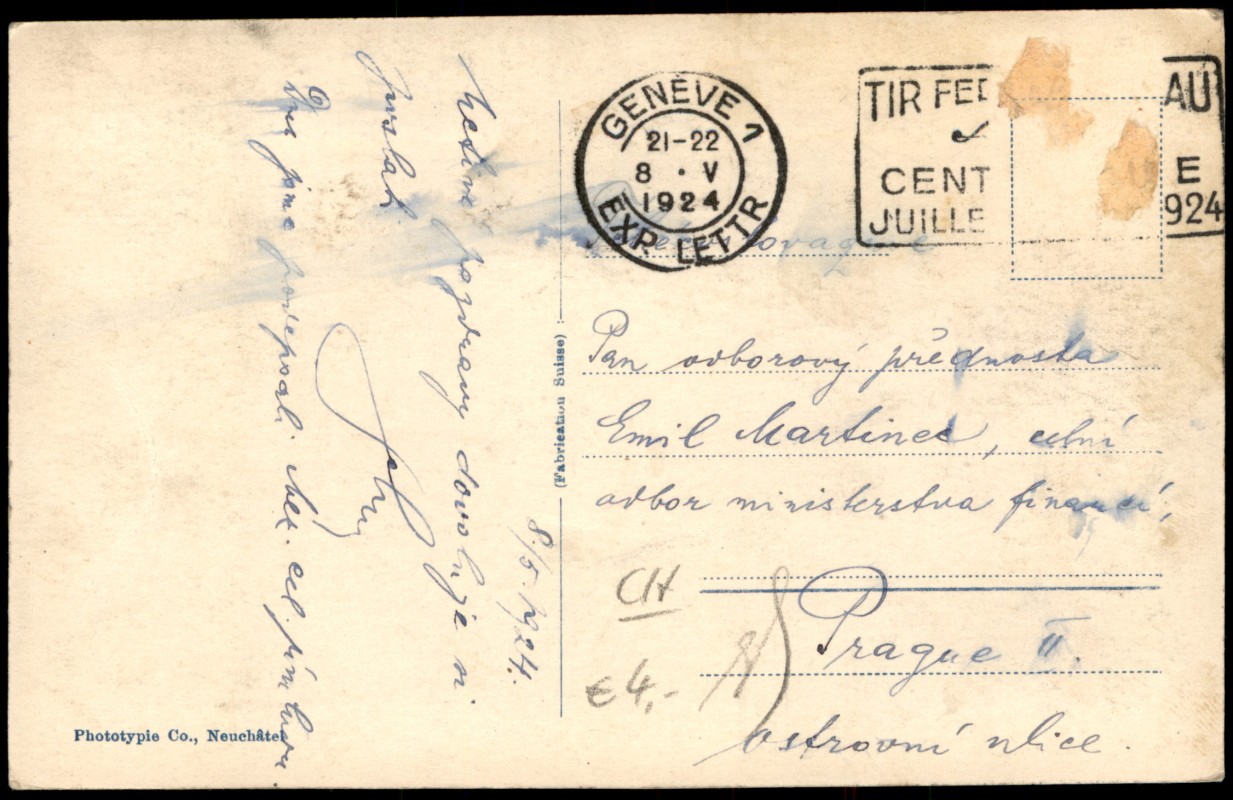 GENÈVE 1
21-22
8 · V
1924
EXP. LETTR
TIR FED AU
CENT E
JUILLE 924
Pan odborový přednosta
Emil Martinec, celní
odbor ministerstva financí,
Prague II.
ostrovní ulice.
CH
€ 4,-
8./5. 1924.
pozdravy dovoluje si
Dnes jsme podepsali
(Fabrication Suisse)
Phototypie Co., Neuchâtel